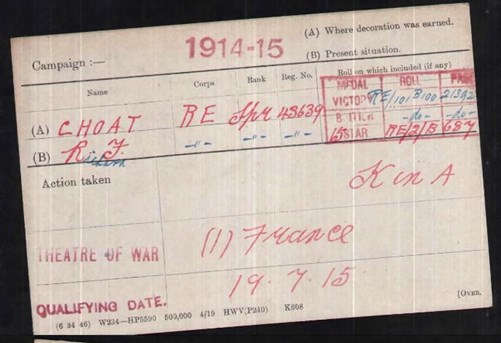 (A) Where decoration was earned.
1914-15
(B) Present situation.
Campaign :—
Name Corps Rank Reg. No. Roll on which included (if any)
MEDAL ROLL PAGE
VICTORY RE/101 B100 21392
(A) CHOAT RE Spr 48639
BRITISH -do- -do-
(B) R. F. -"- -"- -"-
15 STAR RE/2/B 687
Action taken
K in A
THEATRE OF WAR (1) France
QUALIFYING DATE. 19.7.15
(6 34 46) W234—HP5590 500,000 4/19 HWV(P240) K608
[OVER.